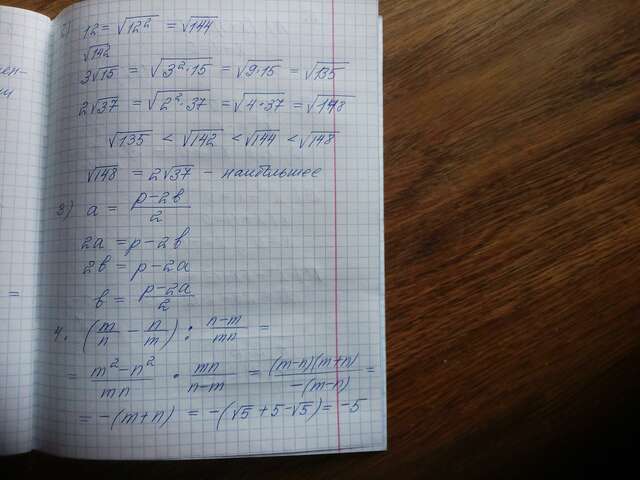 12 = √12² = √144
√142
3√15 = √3²·15 = √9·15 = √135
2√37 = √2²·37 = √4·37 = √148
√135 < √142 < √144 < √148
√148 = 2√37 – наибольшее
3) a = (p-2b)/2
2a = p-2b
2b = p-2a
b = (p-2a)/2
4. (m/n - n/m) : (n-m)/(mn) =
= (m²-n²)/(mn) · (mn)/(n-m) = ((m-n)(m+n))/(-(m-n)) =
= -(m+n) = -(√5+5-√5) = -5